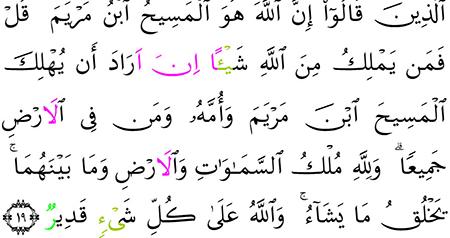 اَ۬لذِينَ قَالُوٓاْ إِنَّ اَ۬للَّهَ هُوَ اَ۬لْمَسِيحُ اُ۪بْنُ مَرْيَمَ قُلْ
فَمَن يَمْلِكُ مِنَ اَ۬للَّهِ شَيْـًٔا اِنَ اَرَادَ أَن يُهْلِكَ
اَ۬لْمَسِيحَ اَ۪بْنَ مَرْيَمَ وَأُمَّهُۥ وَمَن فِي اِ۬لَارْضِ
جَمِيعًا ۗ وَلِلهِ مُلْكُ اُ۬لسَّمَٰوَٰتِ وَالَارْضِ وَمَا بَيْنَهُمَا ۚ
يَخْلُقُ مَا يَشَآءُ ۚ وَاللَّهُ عَلَىٰ كُلِّ شَيْءٍ قَدِيرٌ ١٩